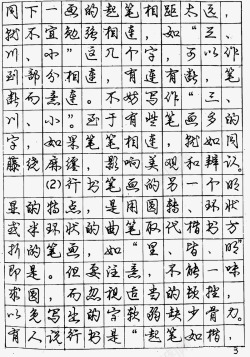 同下一画的起笔相距太远，
就不宜勉强相连，如“三、
川、小”这几个字，可以作
到部分相连，有连有断，笔
断而意连。不妨写作“三、
川、小。”至于有些笔画多的
字，如果笔笔相连，就如同
藤绕麻缠，影响美观和辨认。
(2)行书笔画的另一个明
显的特点，是用圆转、环状
或半环状的曲笔取代楷书方
折的笔画，如“里、皆、明”
即是。但要注意，不能一味
求圆，而忽视适当的顿挫，
以免写出的字软弱缺少骨力。
有人说行书是“起笔如楷，